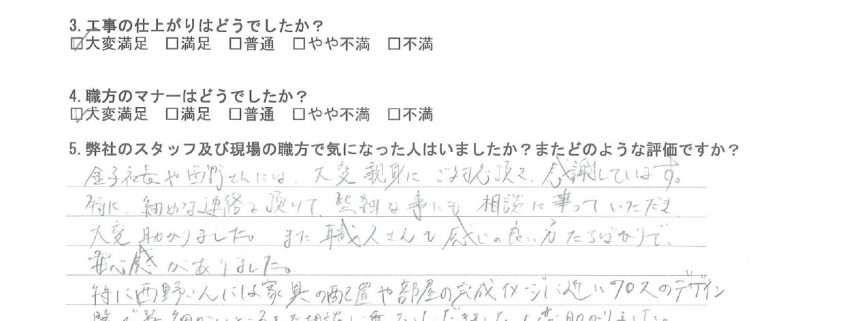 3. 工事の仕上がりはどうでしたか？
☑大変満足 □満足 □普通 □やや不満 □不満
4. 職方のマナーはどうでしたか？
☑大変満足 □満足 □普通 □やや不満 □不満
5. 弊社のスタッフ及び現場の職方で気になった人はいましたか？またどのような評価ですか？
金子社長や西野さんには、大変親身にご対応頂き、感謝しています。
特に、細かな連絡を頂けて、些細な事にも相談に乗っていただき
大変助かりました。また職人さんも感じの良い方たちばかりで、
安心感がありました。
特に西野さんには家具の配置や部屋の完成イメージに近いクロスのデザイン